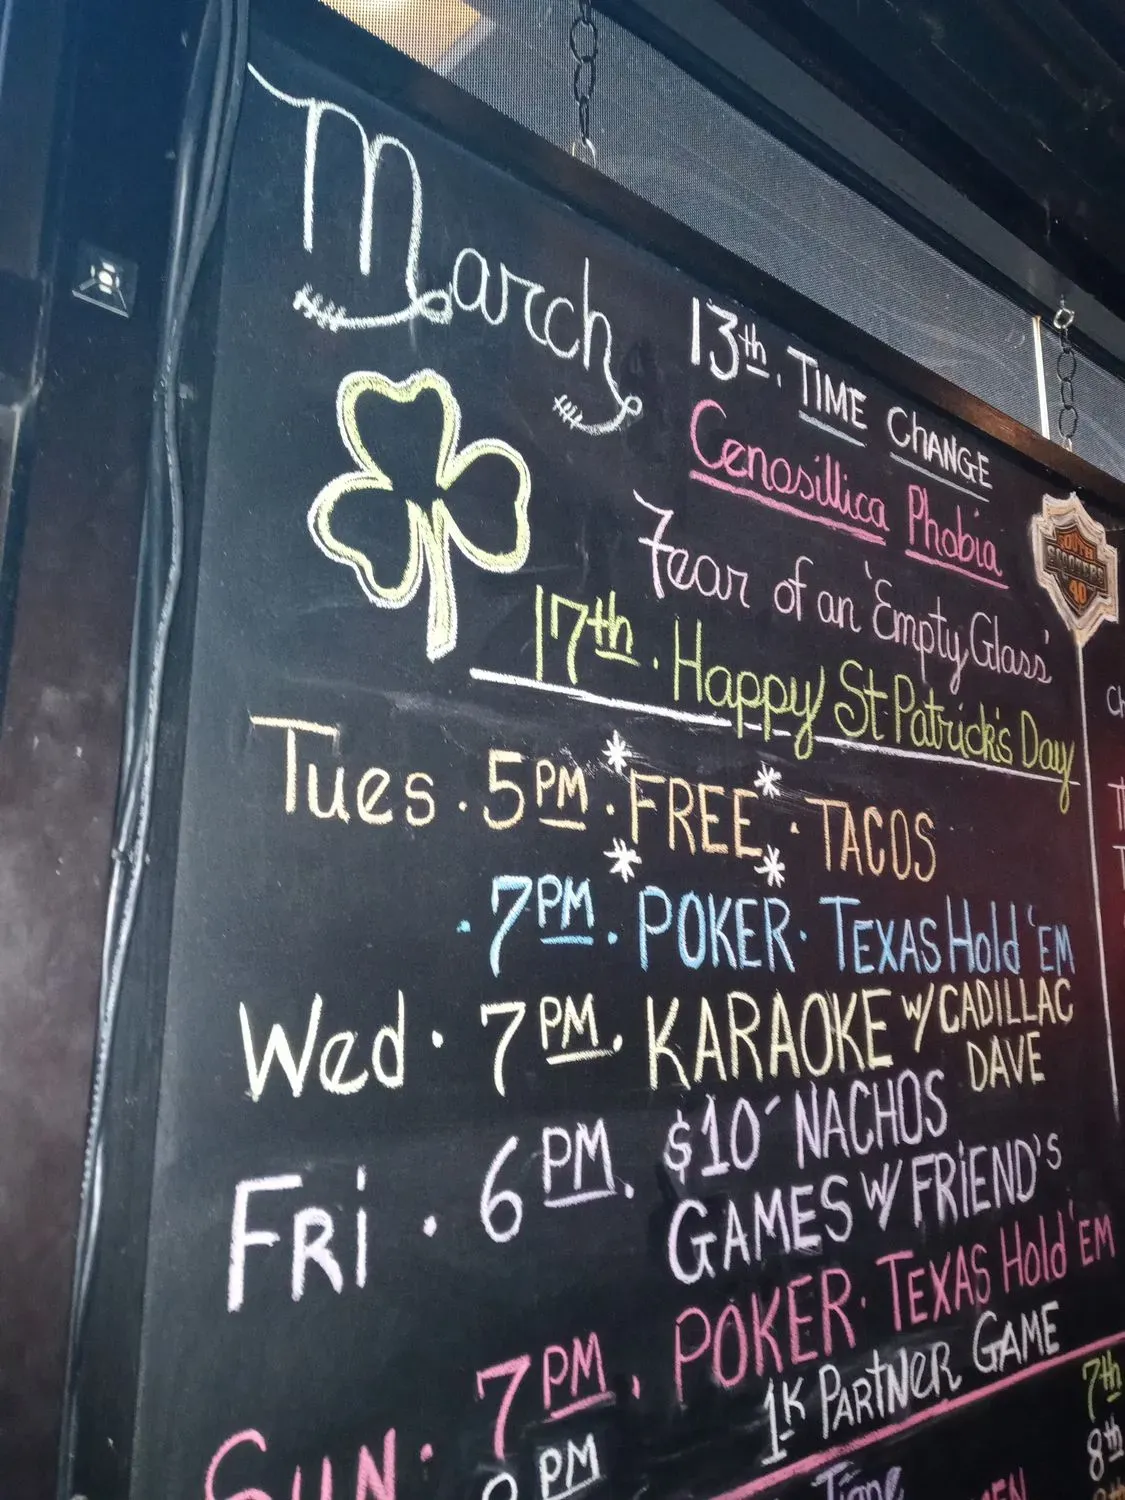 March
13th. TIME CHANGE
Cenosillica Phobia
Fear of an 'Empty Glass'
17th. Happy St Patrick's Day
Tues. 5PM. *FREE*. TACOS
. 7PM. POKER. TEXAS Hold 'EM
Wed. 7PM. KARAOKE w/ CADILLAC
DAVE
Fri. 6PM. $10 NACHOS
GAMES w/ FRiEND's
SUN. 7PM. POKER. TEXAS Hold 'EM
PM 1K PARTNER GAME
7th
8th